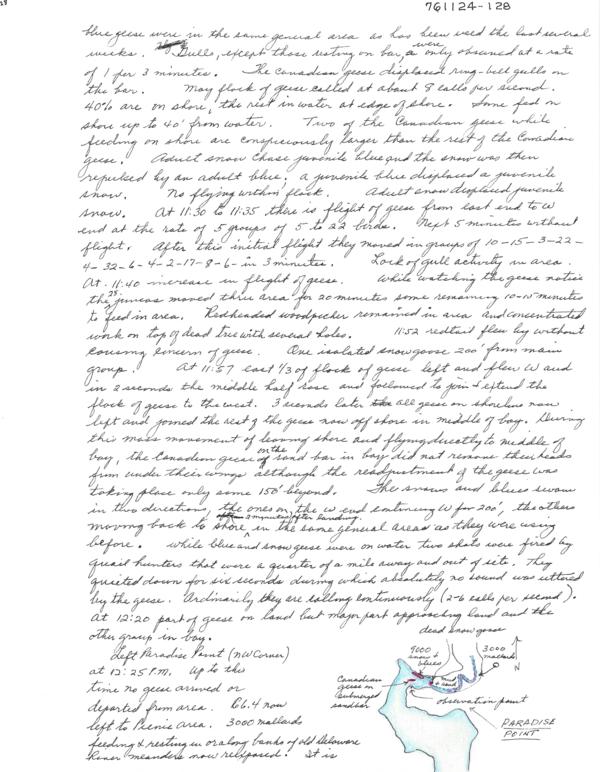 761124-128
blue geese were in the same general area as has been used the last several
weeks. Gulls, except those resting on bar, were only observed at a rate
of 1 per 3 minutes. The Canadian geese displaced ring-bell gulls on
the bar. May flock of geese called at about 8 calls per second.
40% are on shore, the rest in water at edge of shore. Some fed on
shore up to 40' from water. Two of the Canadian geese while
feeding on shore are conspicuously larger than the rest of the Canadian
geese. Adult snow chase juvenile blue and the snow was then
repulsed by an adult blue. A juvenile blue displaced a juvenile
snow. No flying within flock. Adult snow displaced juvenile
snow. At 11:30 to 11:35 there is flight of geese from east end to W
end at the rate of 5 groups of 5 to 22 birds. Next 5 minutes without
flight. After this initial flight they moved in groups of 10-15-3-22-
4-32-6-4-2-17-8-6- in 3 minutes. Lack of gull activity in area.
At 11:40 increase in flight of geese. While watching the geese notice
the 25 juncos moved thru area for 20 minutes some remaining 10-15 minutes
to feed in area. Redheaded woodpecker remained in area and concentrated
work on top of dead tree with several holes. 11:52 redtail flew by without
causing concern of geese. One isolated snow goose 200' from main
group. At 11:57 east 1/3 of flock of geese left and flew W and
in 2 seconds the middle half rose and followed to join & extend the
flock of geese to the west. 3 seconds later all geese on shoreline now
left and joined the rest of the geese now off shore in middle of bay. During
this mass movement of leaving shore and flying directly to middle of
bay, the Canadian geese on the sand bar in bay did not remove their heads
from under their wings although the readjustment of the geese was
taking place only some 150' beyond. The snows and blues swam
in two directions, the ones on the W end continuing W for 200', the others
moving back to shore 3 minutes after landing in the same general areas as they were using
before. While blue and snow geese were on water two shots were fired by
quail hunters that were a quarter of a mile away and out of site. They
quieted down for six seconds during which absolutely no sound was uttered
by the geese. Ordinarily they are calling continuously (2-6 calls per second).
At 12:20 part of geese on land but major part approaching land and the
other group in bay.
Left Paradise Point (NW Corner)
at 12:25 P.M. Up to this
time no geese arrived or
departed from area. 66.4 now
left to Picnic Area. 3000 mallards
feeding & resting in or along banks of old Delaware
River meanders now reexposed. It is
dead snow goose
9000
snow &
blues
3000
mallards
N
mud
& sand
Canadian
geese on
submerged
sandbar
observation point
PARADISE
POINT